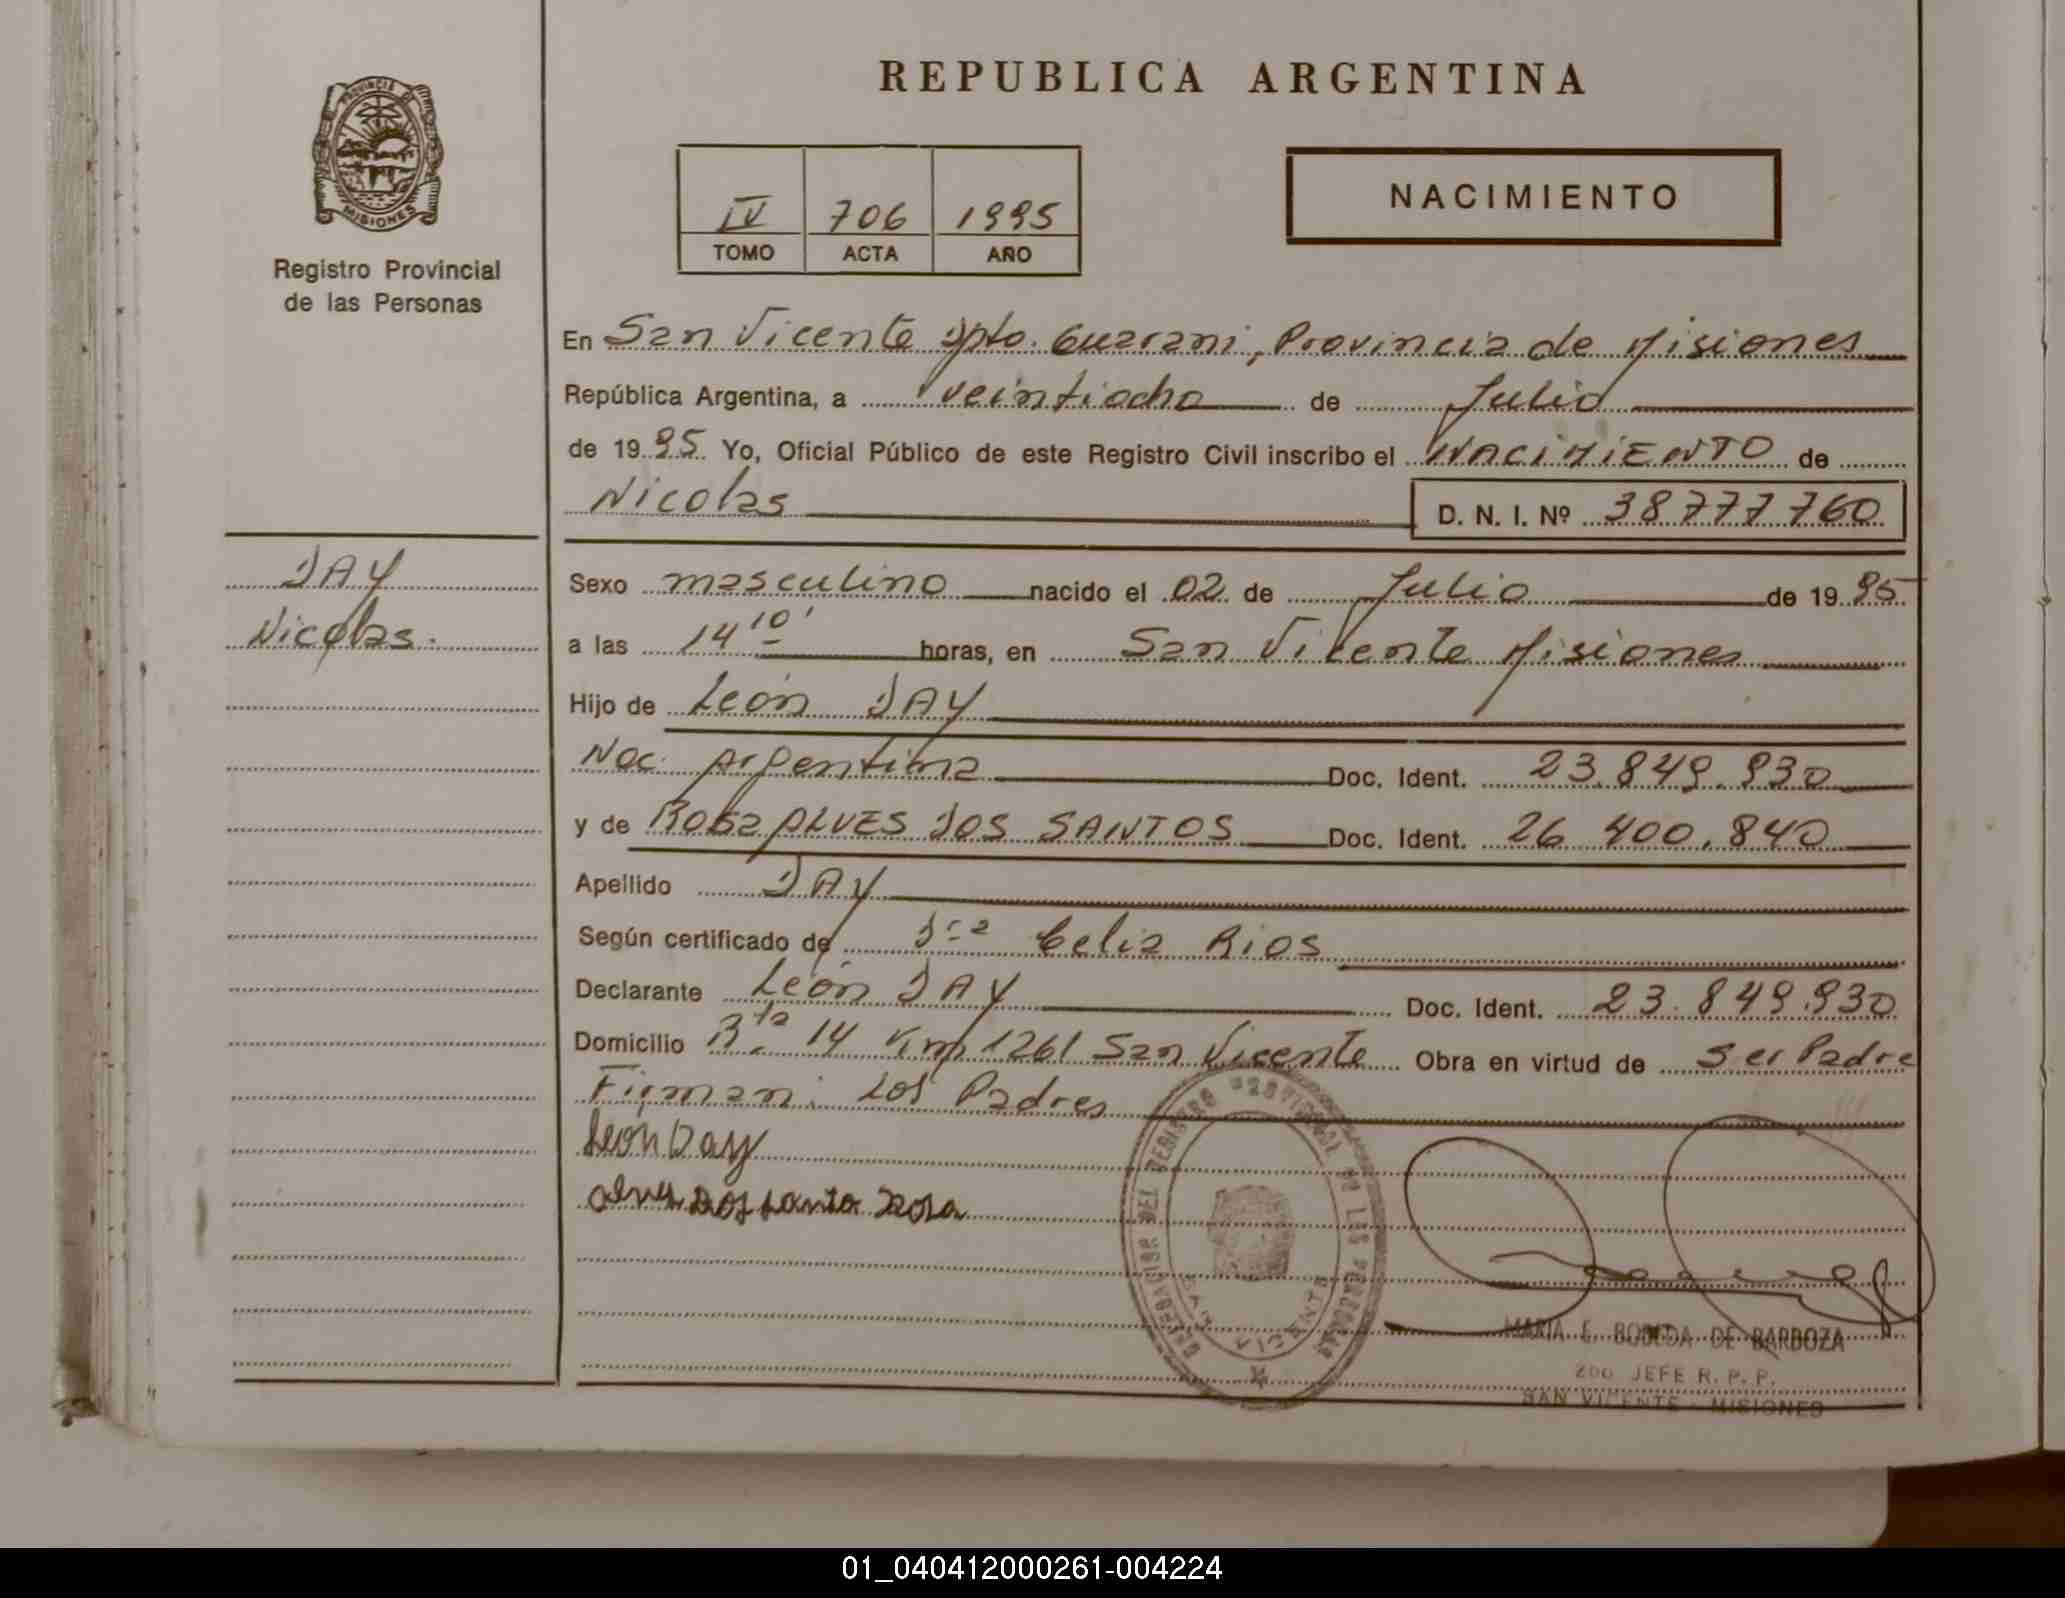 REPUBLICA ARGENTINA
PROVINCIA DE
MISIONES
Registro Provincial
de las Personas
IV 706 1995
TOMO ACTA AÑO
NACIMIENTO
En San Vicente Dpto. Guarani, Provincia de Misiones
República Argentina, a veintiocho de Julio
de 1995 Yo, Oficial Público de este Registro Civil inscribo el NACIMIENTO de
Nicolas D. N. I. Nº 38777760
DAY
Nicolas.
Sexo masculino nacido el 02 de Julio de 1995
a las 14 10' horas, en San Vicente Misiones
Hijo de León DAY
Nac. Argentina Doc. Ident. 23.849.930
y de Rosa ALVES DOS SANTOS Doc. Ident. 26 400.840
Apellido DAY
Según certificado de Dra Celia Rios
Declarante León DAY Doc. Ident. 23.849.930
Domicilio Rta. 14 Km 1261 San Vicente Obra en virtud de ser Padre
Firman: Los Padres
Leon Day
Alves Dos Santo Rosa
DEL REGISTRO PROVINCIAL DE LAS PERSONAS
SAN VICENTE
MARIA E. BOBEDA DE BARDOZA
2DO JEFE R. P. P.
SAN VICENTE - MISIONES
01_040412000261-004224